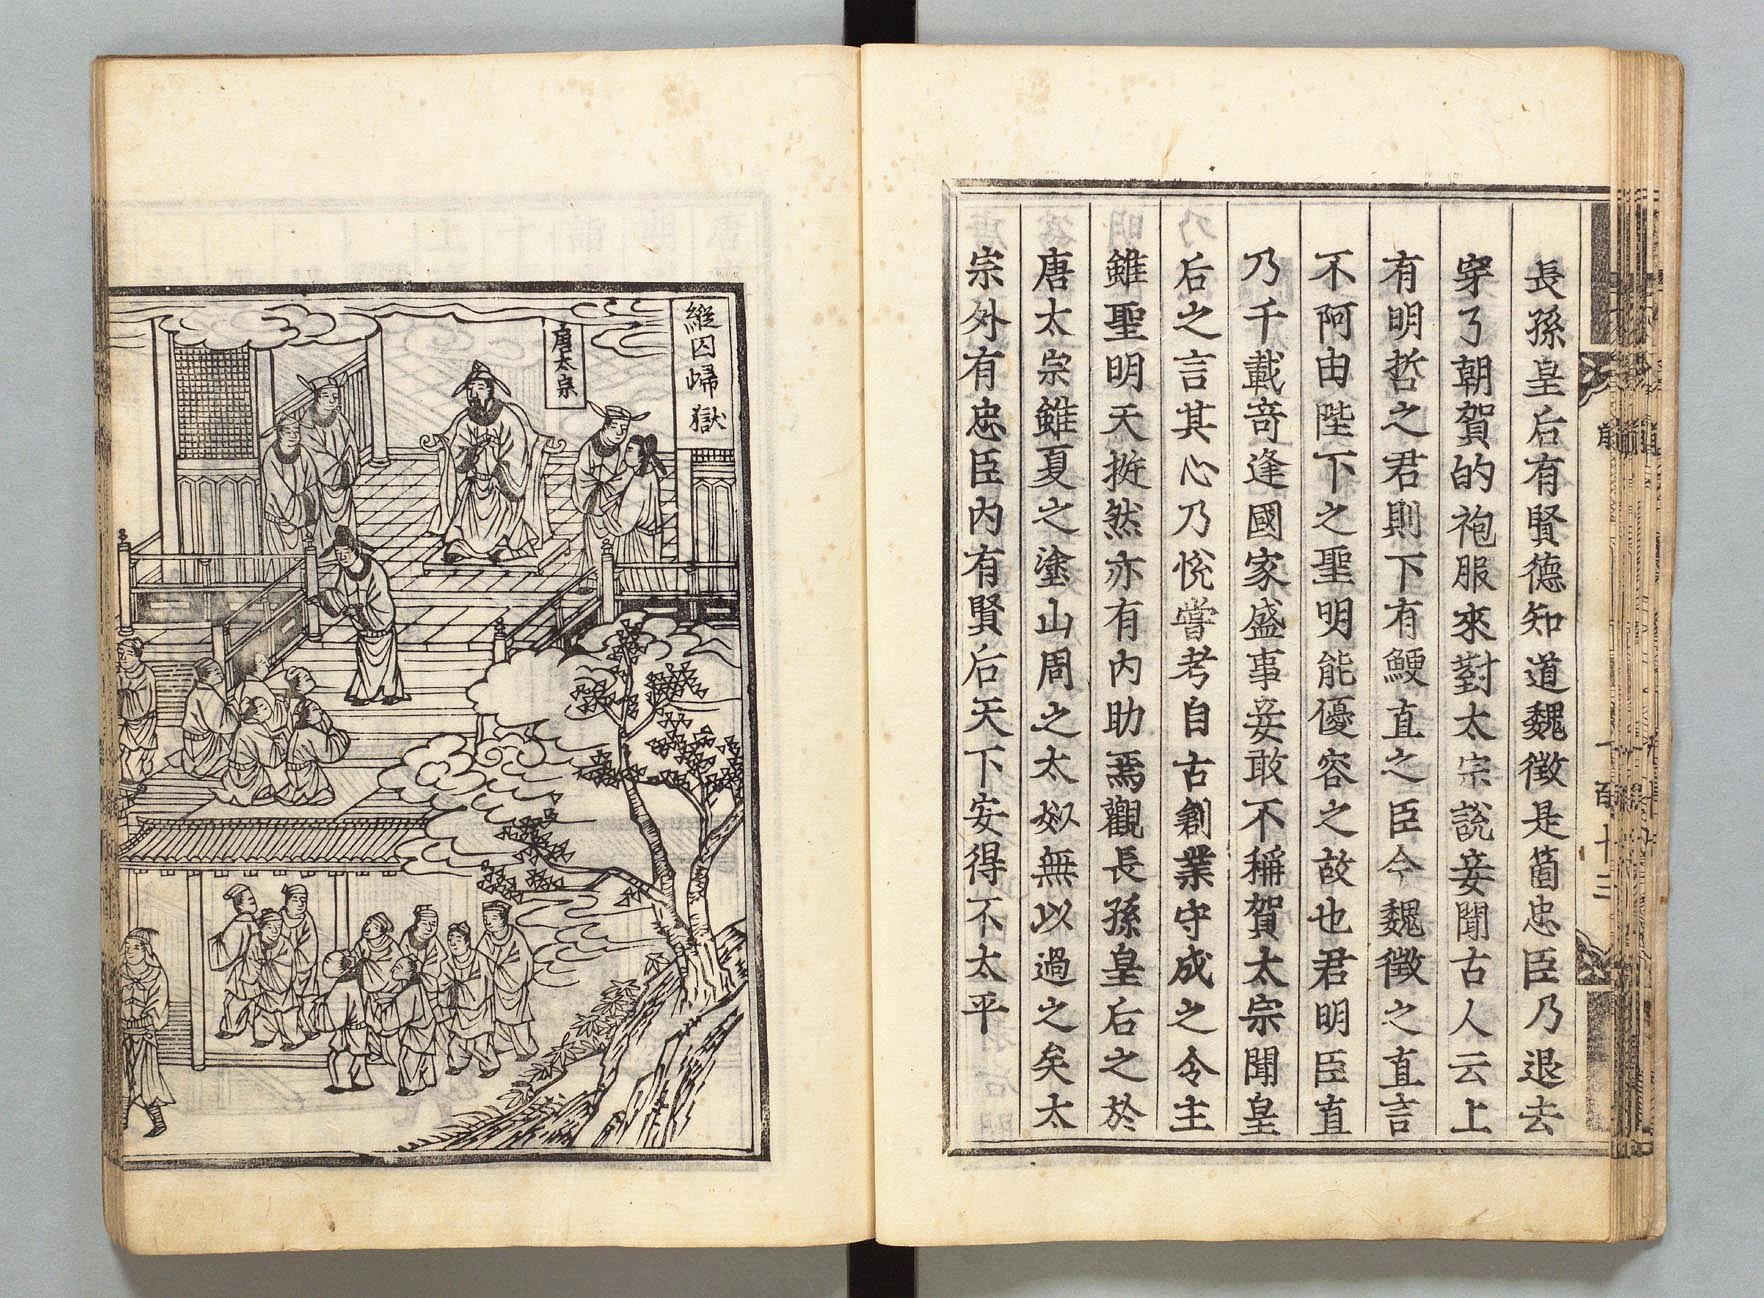 長孫皇后有賢德知道魏徵是箇忠臣乃退去
穿了朝賀的袍服來對太宗說妾聞古人云上
有明哲之君則下有鯁直之臣今魏徵之直言
不阿由陛下之聖明能優容之故也君明臣直
乃千載奇逢國家盛事妾敢不稱賀太宗聞皇
后之言其心乃悅嘗考自古創業守成之令主
雖聖明天挺然亦有內助焉觀長孫皇后之於
唐太宗雖夏之塗山周之太姒無以過之矣太
宗外有忠臣內有賢后天下安得不太平
縱囚歸獄
唐太宗